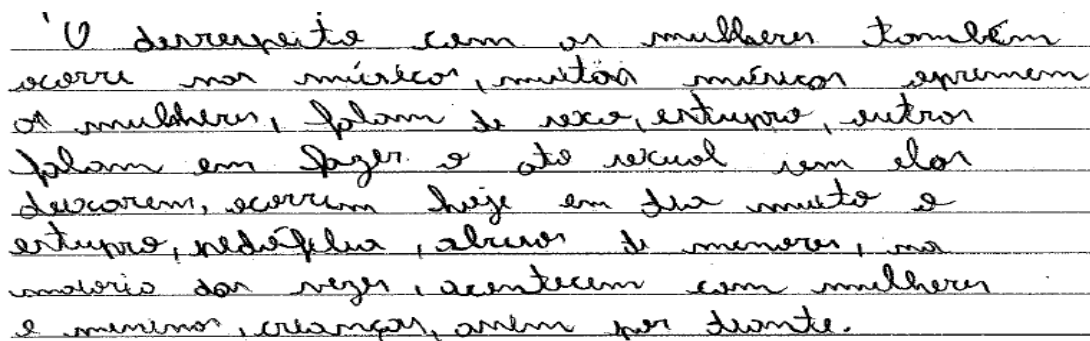 'O desrespeito com as mulheres também
ocorre nas músicas, muitas músicas oprimem
as mulheres, falam de sexo, estupro, outros
falam em fazer o ato sexual sem elas
deixarem, ocorrem hoje em dia muito o
estupro, pedófelia, abusos de menores, na
maioria das vezes, acontecem com mulheres
e meninas, crianças, assim por diante.